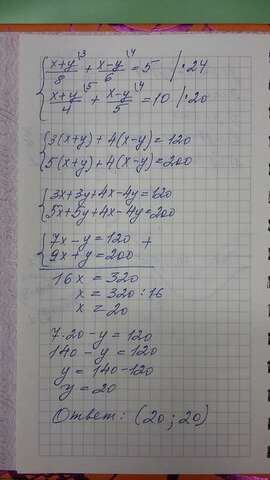 { (x+y)/8 \3 + (x-y)/6 \4 = 5 / · 24
{ (x+y)/4 \5 + (x-y)/5 \4 = 10 / · 20
{ 3(x+y) + 4(x-y) = 120
{ 5(x+y) + 4(x-y) = 200
{ 3x+3y+4x-4y=120
{ 5x+5y+4x-4y=200
{ 7x - y = 120 +
{ 9x + y = 200
16x = 320
x = 320 : 16
x = 20
7·20 - y = 120
140 - y = 120
y = 140 - 120
y = 20
Ответ: (20 ; 20)